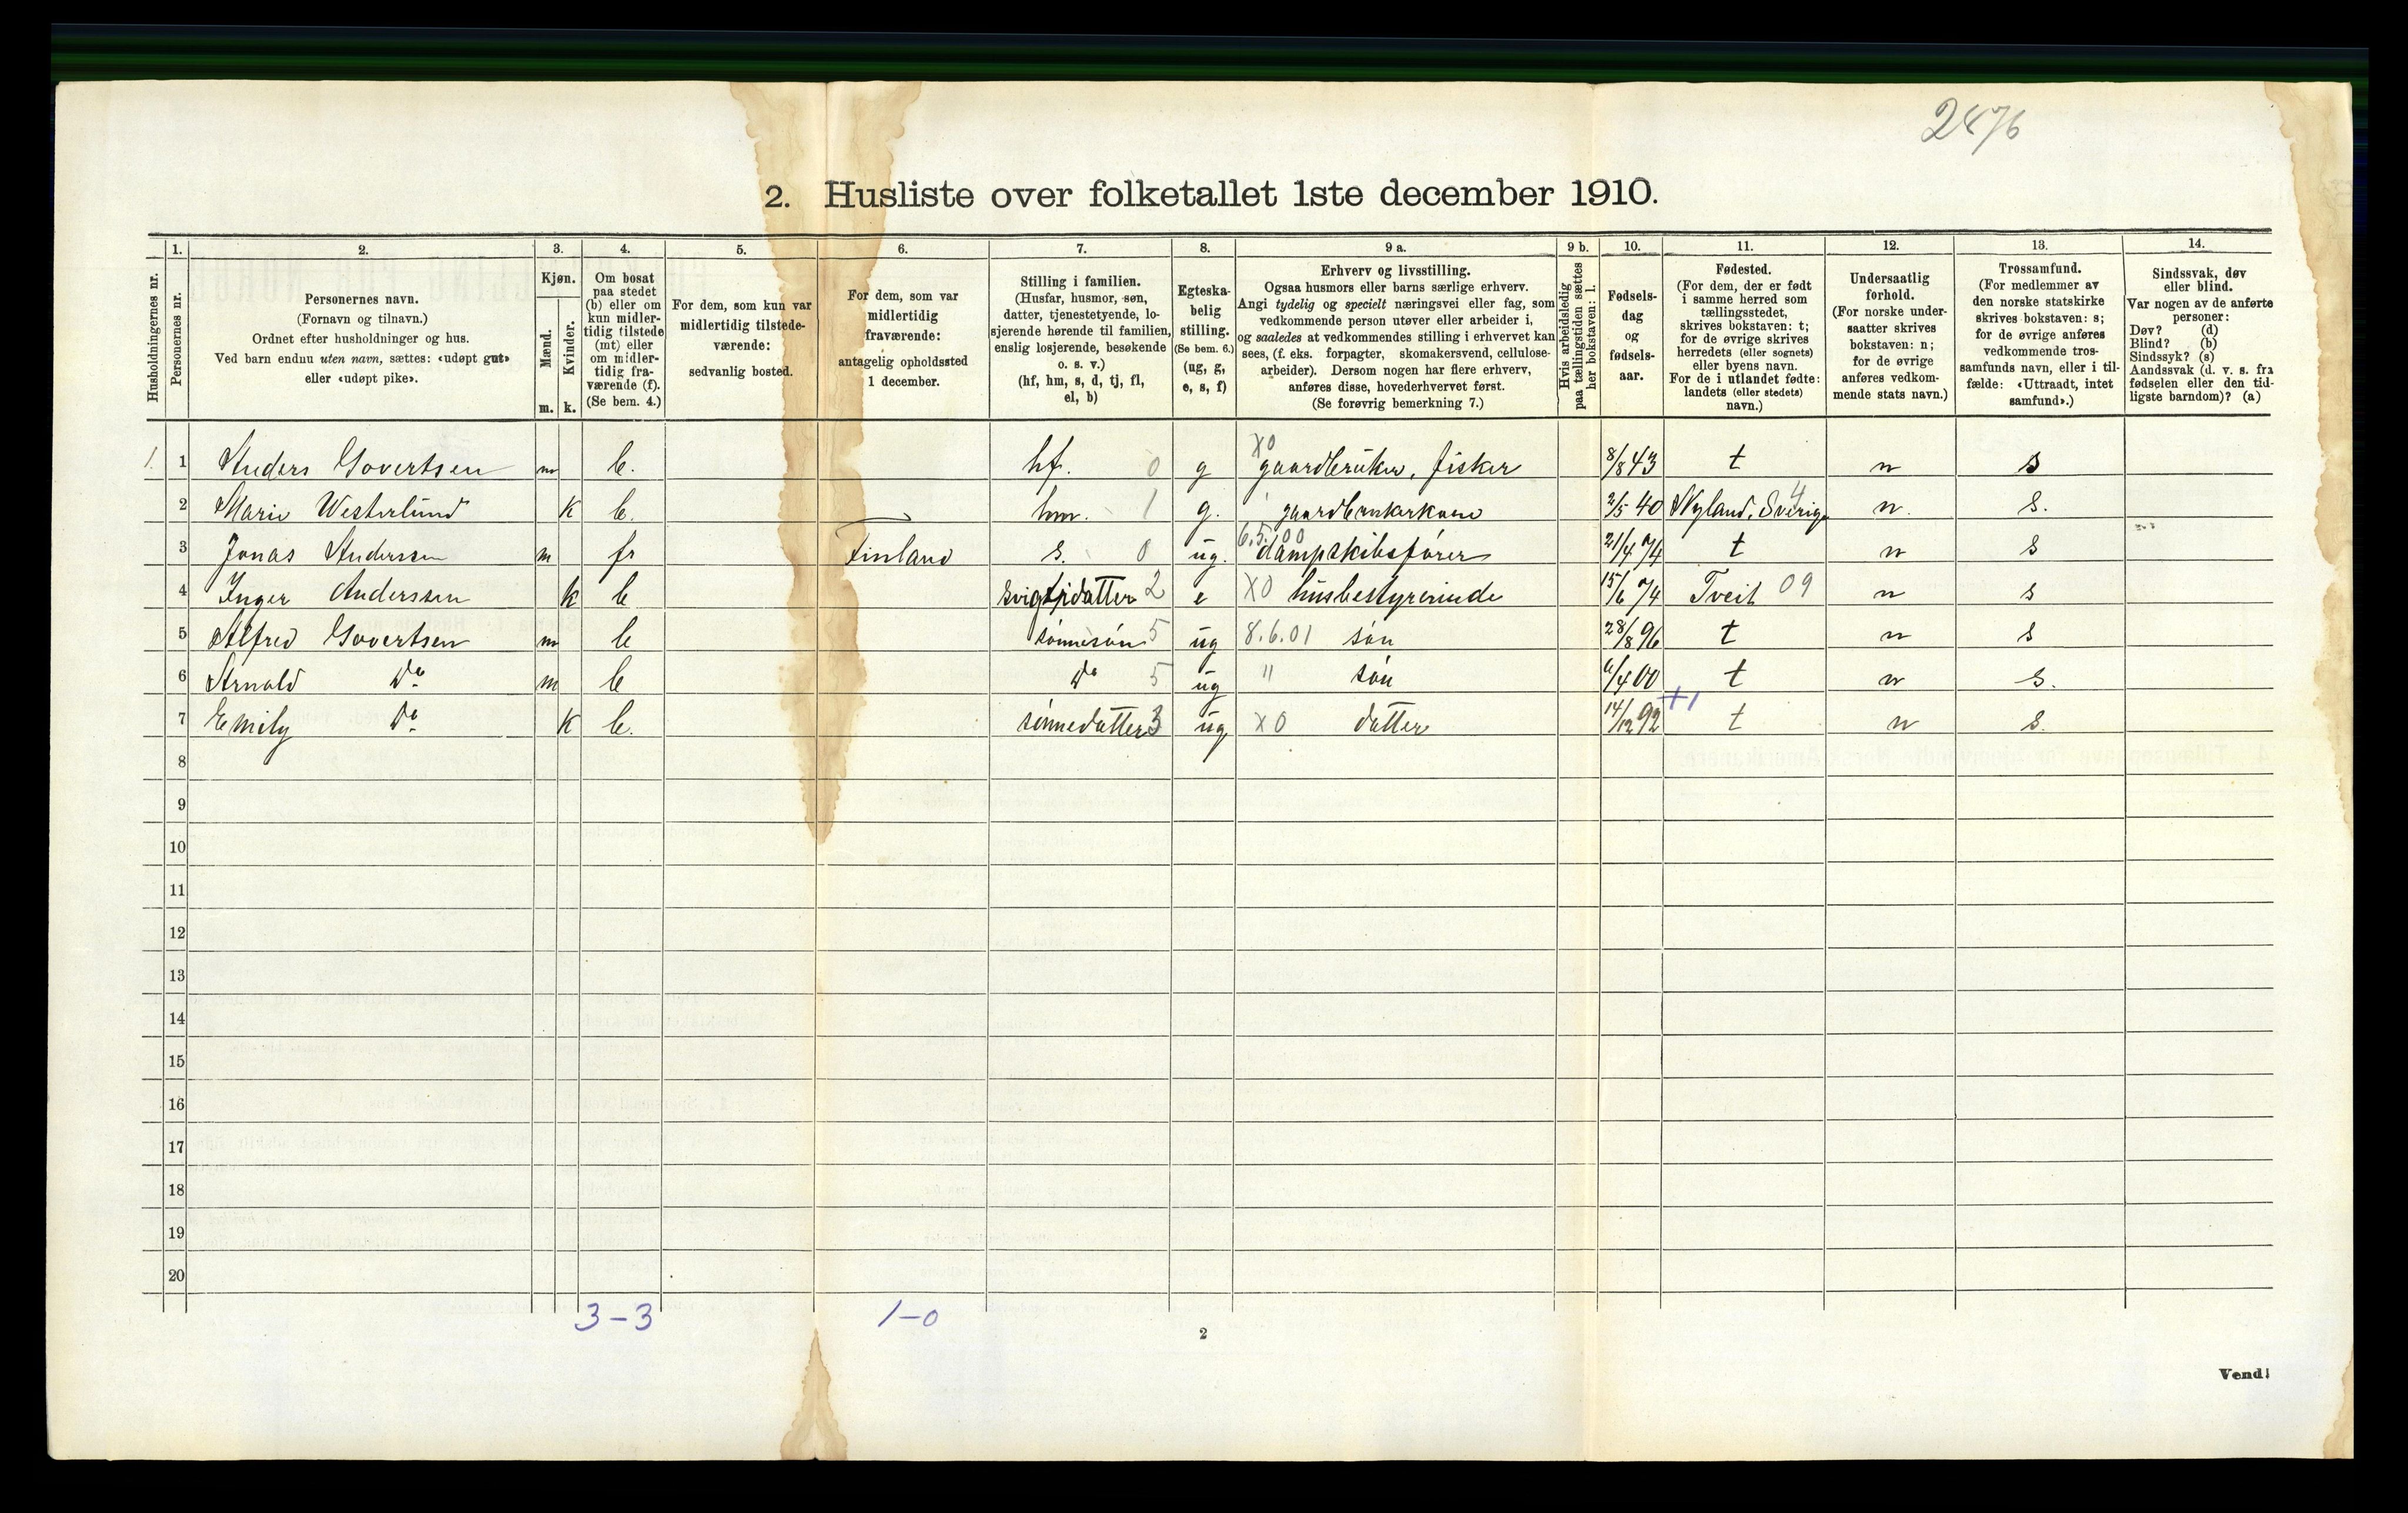 2476
2. Husliste over folketallet 1ste december 1910.
Husholdningernes nr.
1.
Personernes nr.
2.
Personernes navn.
(Fornavn og tilnavn.)
Ordnet efter husholdninger og hus.
Ved barn endnu uten navn, sættes: «udøpt gut»
eller «udøpt pike».
3.
Kjøn.
Mænd.
Kvinder.
m. k.
4.
Om bosat
paa stedet
(b) eller om
kun midler-
tidig tilstede
(mt) eller
om midler-
tidig fra-
værende (f).
(Se bem. 4.)
5.
For dem, som kun var
midlertidig tilstede-
værende:
sedvanlig bosted.
6.
For dem, som var
midlertidig
fraværende:
antagelig opholdssted
1 december.
7.
Stilling i familien.
(Husfar, husmor, søn,
datter, tjenestetyende, lo-
sjerende hørende til familien,
enslig losjerende, besøkende
o. s. v.)
(hf, hm, s, d, tj, fl,
el, b)
8.
Egteska-
belig
stilling.
(Se bem. 6.)
(ug, g,
e, s, f)
9 a.
Erhverv og livsstilling.
Ogsaa husmors eller barns særlige erhverv.
Angi tydelig og specielt næringsvei eller fag, som
vedkommende person utøver eller arbeider i,
og saaledes at vedkommendes stilling i erhvervet kan
sees, (f. eks. forpagter, skomakersvend, cellulose-
arbeider). Dersom nogen har flere erhverv,
anføres disse, hovederhvervet først.
(Se forøvrig bemerkning 7.)
9 b.
Hvis arbeidsledig
paa tællingstiden sættes
her bokstaven: l.
10.
Fødsels-
dag
og
fødsels-
aar.
11.
Fødested.
(For dem, der er født
i samme herred som
tællingsstedet,
skrives bokstaven: t;
for de øvrige skrives
herredets (eller sognets)
eller byens navn.
For de i utlandet fødte:
landets (eller stedets)
navn.)
12.
Undersaatlig
forhold.
(For norske under-
saatter skrives
bokstaven: n;
for de øvrige
anføres vedkom-
mende stats navn.)
13.
Trossamfund.
(For medlemmer av
den norske statskirke
skrives bokstaven: s;
for de øvrige anføres
vedkommende tros-
samfunds navn, eller i til-
fælde: «Uttraadt, intet
samfund».)
14.
Sindssvak, døv
eller blind.
Var nogen av de anførte
personer:
Døv? (d)
Blind? (b)
Sindssyk? (s)
Aandssvak (d. v. s. fra
fødselen eller den tid-
ligste barndom)? (a)
1. 1 Anders Govertsen m b. hf. 0 g X0 gaardbruker, fisker 8/8 43 t n s
2 Marie Westerlund k b. hm. 1 g. gaardbrukerkone 2/5 40 Nyland, Sverige 4 n. s.
3 Jonas Anderssen m fr Finland s. 0 ug. 6.5.00 dampskibsfører 21/4 74 t n s
4 Inger Anderssen k b svigerdatter 2 e X0 husbestyrerinde 15/6 74 Tveit 09 n s
5 Alfred Govertsen m b sønnesøn 5 ug 8.6.01 søn 28/8 96 t n s
6 Arnold do m b do 5 ug " søn 6/4 00 t n s.
7 Emily do k b. sønnedatter 3 ug X0 datter 14/12 92 +1 t n s.
8
9
10
11
12
13
14
15
16
17
18
19
20
3-3 1-0
2
Vend!